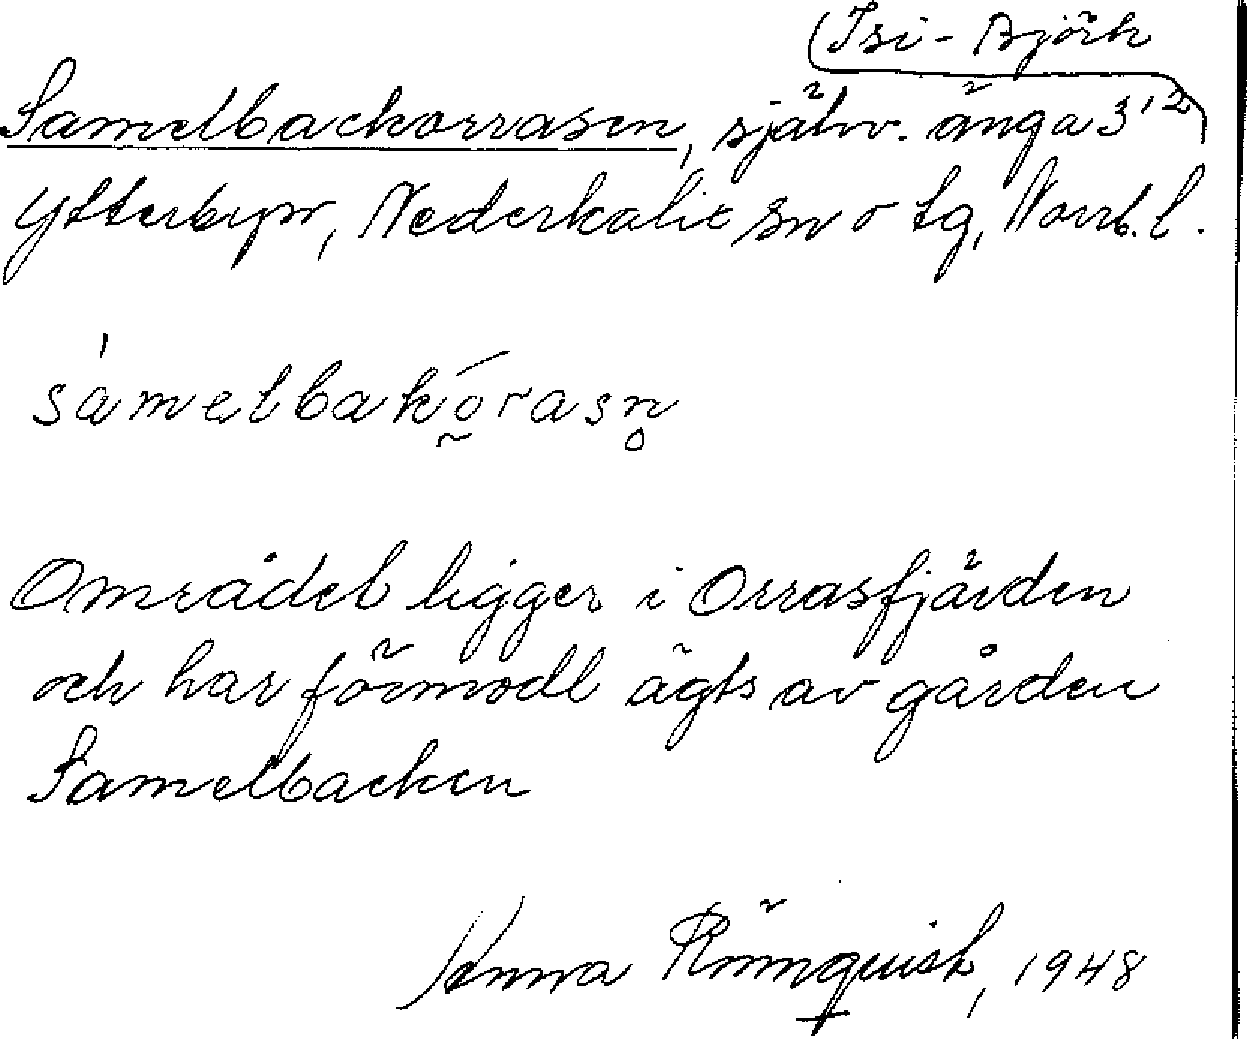 (Isi-Björk
Samelbackorrasen, självv. änga 3¹²)
Ytterbyn, Nederkalix sn o tg, Norrb. l.
sámelbakó̰rasn̥
Området ligger i Orrasfjärden
och har förmodl ägts av gården
Samelbacken
Anna Rönnquist, 1948